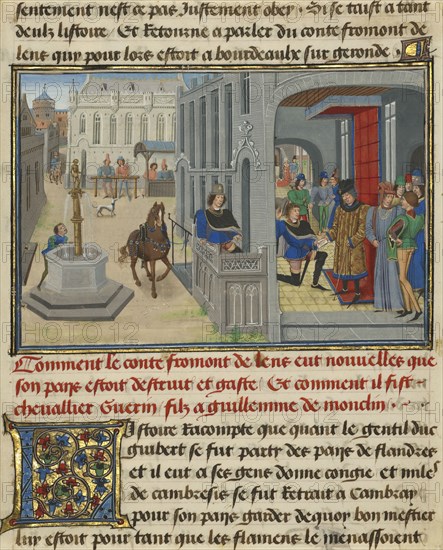 sentement nest ce pas Justement obey . Si se taist a tant
deulx listoire . Et Retourne a parler du conte fromont de
lens quy pour lors estoit a bourdeaulx sur geronde .
Comment le conte fromont de lens eut nouvelles que
son pays estoit destruit et gaste . Et comment il fist
chevallier Guerin filz a guillemme de monclin .
Listoire Racompte que quant le gentil duc
guibert se fut party des pays de flandres
et il eut a ses gens donne congie et mile
de cambresis se fut Retrait a Cambray
pour son pays garder de quoy bon mestier
luy estoit pour tant que les flamens le menassoient